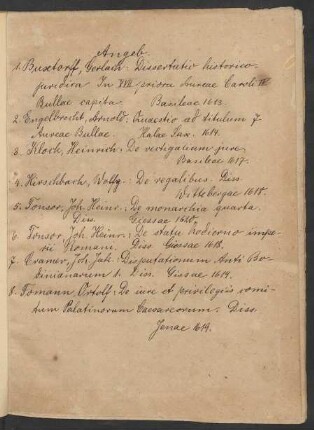 Angeb.
1. Buxtorff, Gerlach: Dissertatio historico
juridica In VIII priora Aureae Caroli IV
Bullae capita Basileae 1613
2. Engelbrecht, Arnold: Quaestio ad titulum 7
Aureae Bullae. Halae Sax. 1614.
3. Klock, Heinrich: De vectigalium jure
Basileae 1617.
4. Hirschbach, Wolfg.: De regalibus. Diss
Wittebergae 1618.
5. Tonsor, Joh. Heinr.: De monarchia quarta.
Diss. Giessae 1620.
6. Tonsor, Joh. Heinr.: De statu hodierno impe-
rii Romani. Diss Giessae 1618.
7. Cramer, Joh. Jak.: Disputationum Anti Bo-
dinianarum 1. Diss. Gissae 1619.
8. Fomann, Ortolf: De iure et privilegiis comi-
tum Palatinorum Caesareorum. Diss.
Jenae 1619.